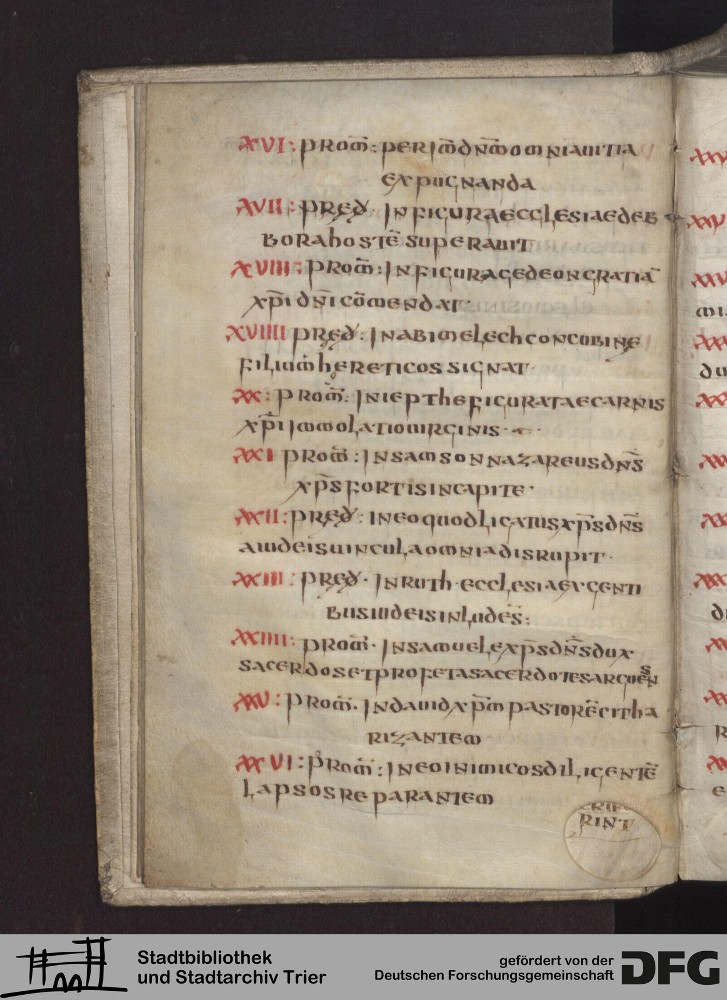 XVI: PROM̄: PER IM̄DNM̄OMNIAUITIA
EXPUGNANDA
XVII: PRED· INFIGURAECCLESIAEDEB
BORAHOSTĒ SUPERAUIT
XVIII: PROM̄: INFIGURAGEDEONGRATIĀ
XP̄I DN̄I CŌMENDAT·
XVIIII PRED: INABIMELECHCONCUBINE
FILIUM̄HERETICOSSIGNAT·
XX: PROM̄: INIEPTHEFIGURATAECARNIS
XP̄I IMMOLATIOUIRGINIS·
XXI PROM̄: INSAMSONNAZAREUSDN̄S
XP̄SFORTISINCAPITE·
XXII: PRED: INEOQUODLIGATUSXP̄SDN̄S
AIUDEISUINCULAOMNIADISRUPIT·
XXIII: PRED· INRUTH·ECCLESIAEXGENTI
BUSIUDEISINLUDĒS:
XXIIII: PROM̄· INSAMUELEXP̄SDN̄SDUX
SACERDOSETPROFETASACERDOTESARGUĒNS
XXV: PROM̄· INDAUIDXP̄M̄PASTORĒCITHA
RIZANTEM
XXVI: PROM̄: INEOINIMICOSDILIGENTĒ
LAPSOSREPARANTEM
RINT
Stadtbibliothek
und Stadtarchiv Trier
gefördert von der
Deutschen Forschungsgemeinschaft
DFG